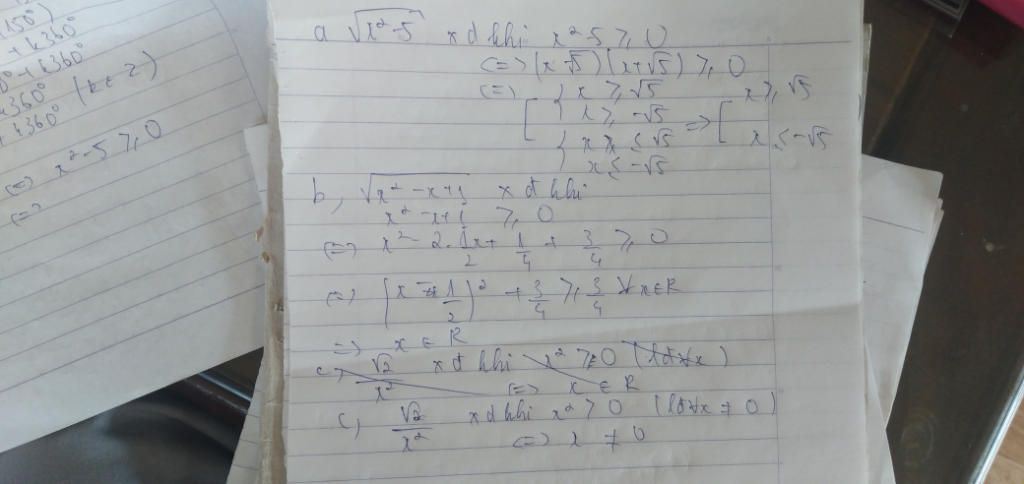 150°)
+ k360°
0° + k360°
k360° (k ∈ Z)
+ k360°
(=) x² - 5 ≥ 0
(=)
a √x²-5 xđ khi x² - 5 ≥ 0
(=) (x-√5)(x+√5) ≥ 0
(=) [ { x ≥ √5 x ≥ √5
{ x ≥ -√5 => [
{ x ≤ √5 x ≤ -√5
x ≤ -√5
b, √x² - x+1 xđ khi
x² - x+1 ≥ 0
(=) x² - 2. 1/2 x + 1/4 + 3/4 ≥ 0
(=) (x - 1/2)² + 3/4 ≥ 3/4 ∀x∈R
=> x ∈ R
c, √2/x² xđ khi x² ≥ 0 (lđ∀x)
(=) x ∈ R
c, √2/x² xđ khi x² > 0 (lđ∀x ≠ 0)
(=) x ≠ 0